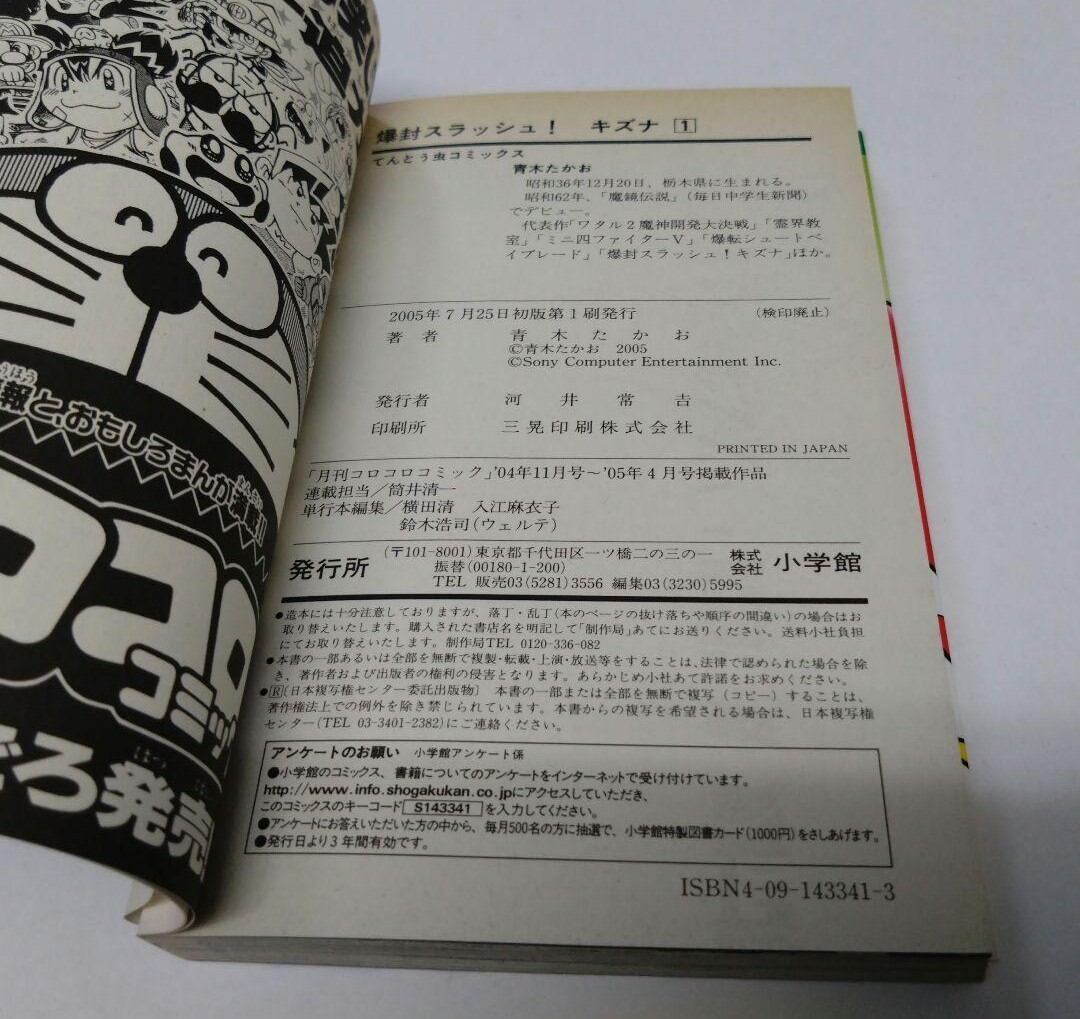 爆封スラッシュ! キズナ 1
てんとう虫コミックス
青木たかお
昭和36年12月20日、栃木県に生まれる。
昭和62年、「魔鏡伝説」(毎日中学生新聞)
でデビュー。
代表作「ワタル2魔神開発大決戦」「霊界教
室」「ミニ四ファイターV」「爆転シュートベ
イブレード」「爆封スラッシュ!キズナ」ほか。
2005年7月25日初版第1刷発行 (検印廃止)
著者 青木たかお
©青木たかお 2005
©Sony Computer Entertainment Inc.
発行者 河井常吉
印刷所 三晃印刷株式会社
PRINTED IN JAPAN
「月刊コロコロコミック」'04年11月号~'05年4月号掲載作品
連載担当/筒井清一
単行本編集/横田清 入江麻衣子
鈴木浩司(ウェルテ)
発行所 (〒101-8001)東京都千代田区一ツ橋二の三の一 株式会社 小学館
振替(00180-1-200)
TEL 販売03(5281)3556 編集03(3230)5995
●造本には十分注意しておりますが、落丁・乱丁(本のページの抜け落ちや順序の間違い)の場合はお
取り替えいたします。購入された書店名を明記して「制作局」あてにお送りください。送料小社負担
にてお取り替えいたします。制作局TEL 0120-336-082
●本書の一部あるいは全部を無断で複製・転載・上演・放送等をすることは、法律で認められた場合を除
き、著作者および出版者の権利の侵害となります。あらかじめ小社あて許諾をお求めください。
●R〔日本複写権センター委託出版物〕 本書の一部または全部を無断で複写(コピー)することは、
著作権法上での例外を除き禁じられています。本書からの複写を希望される場合は、日本複写権
センター(TEL 03-3401-2382)にご連絡ください。
アンケートのお願い 小学館アンケート係
●小学館のコミックス、書籍についてのアンケートをインターネットで受け付けています。
http://www.info.shogakukan.co.jpにアクセスしていただき、
このコミックスのキーコード S143341 を入力してください。
●アンケートにお答えいただいた方の中から、毎月500名の方に抽選で、小学館特製図書カード(1000円)をさしあげます。
●発行日より3年間有効です。
ISBN4-09-143341-3
報と、おもしろまんが満載!!
コロ
コミッ
ごろ発売